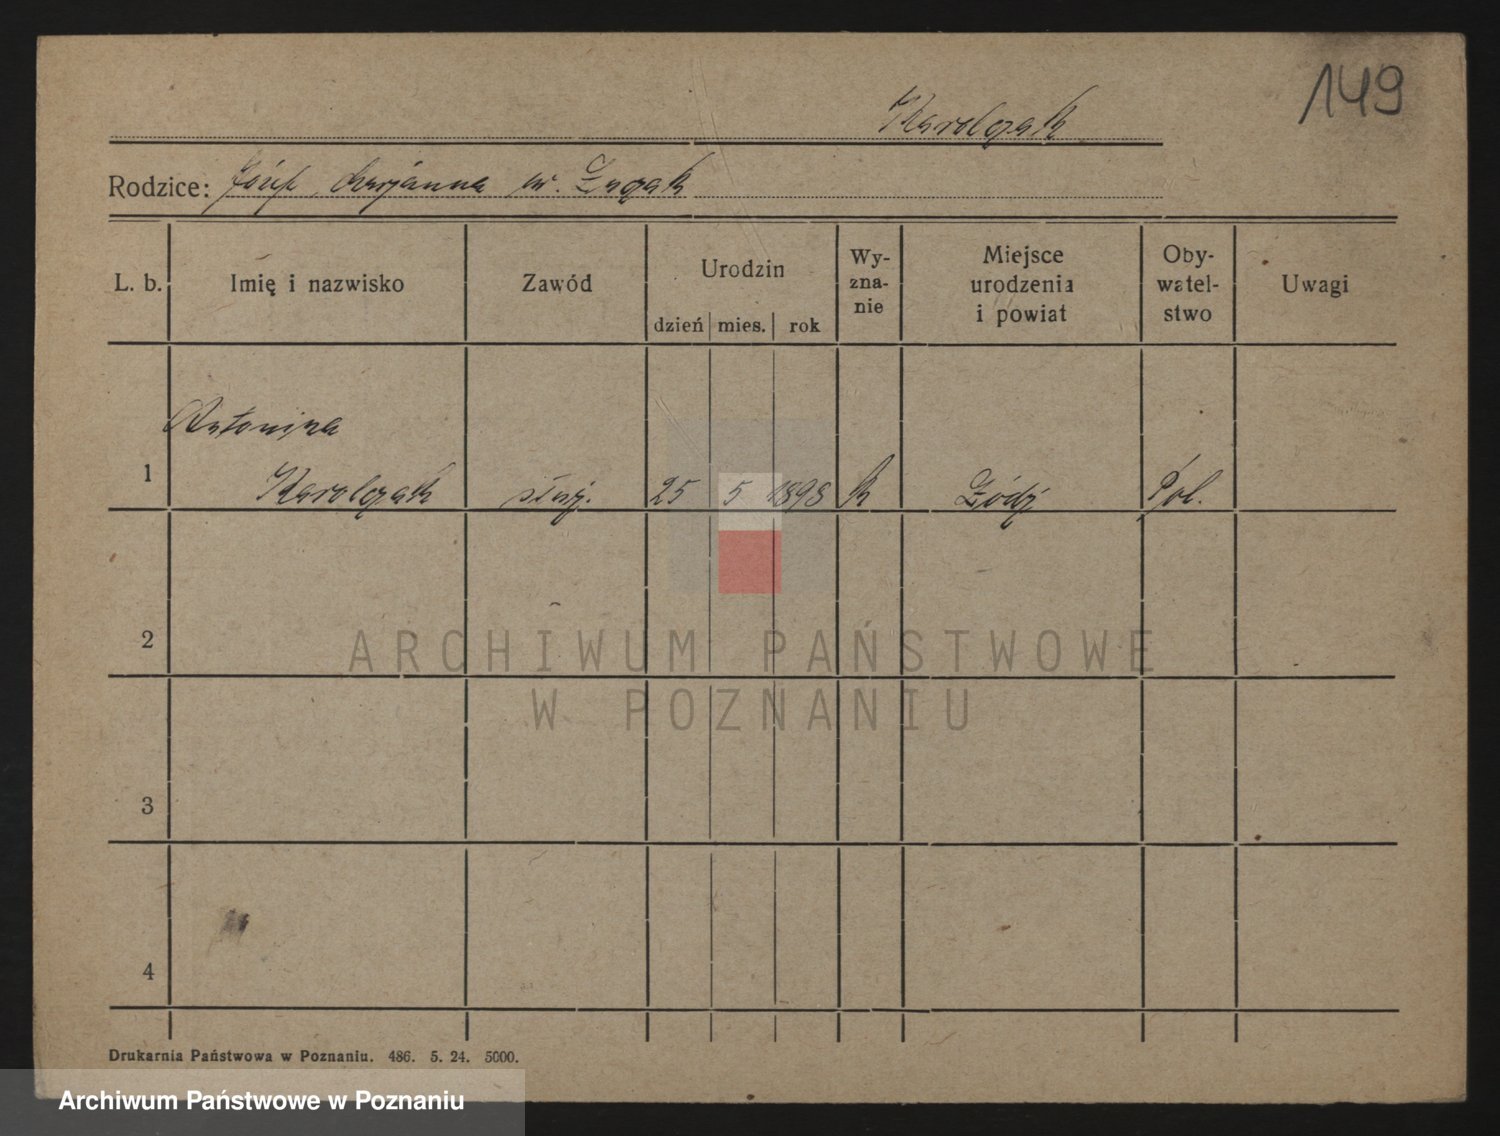 149
Karolczak
Rodzice: Józef, Marjanna ur.
L. b. Imię i nazwisko Zawód Urodzin dzień mies. rok Wy-zna-nie Miejsce urodzenia i powiat Oby-watel-stwo Uwagi
Antonina
1 Karolczak służ. 25 5 1898 k Łódź Pol.
2
ARCHIWUM PAŃSTWOWE
W POZNANIU
3
4
Drukarnia Państwowa w Poznaniu. 486. 5. 24. 5000.
Archiwum Państwowe w Poznaniu